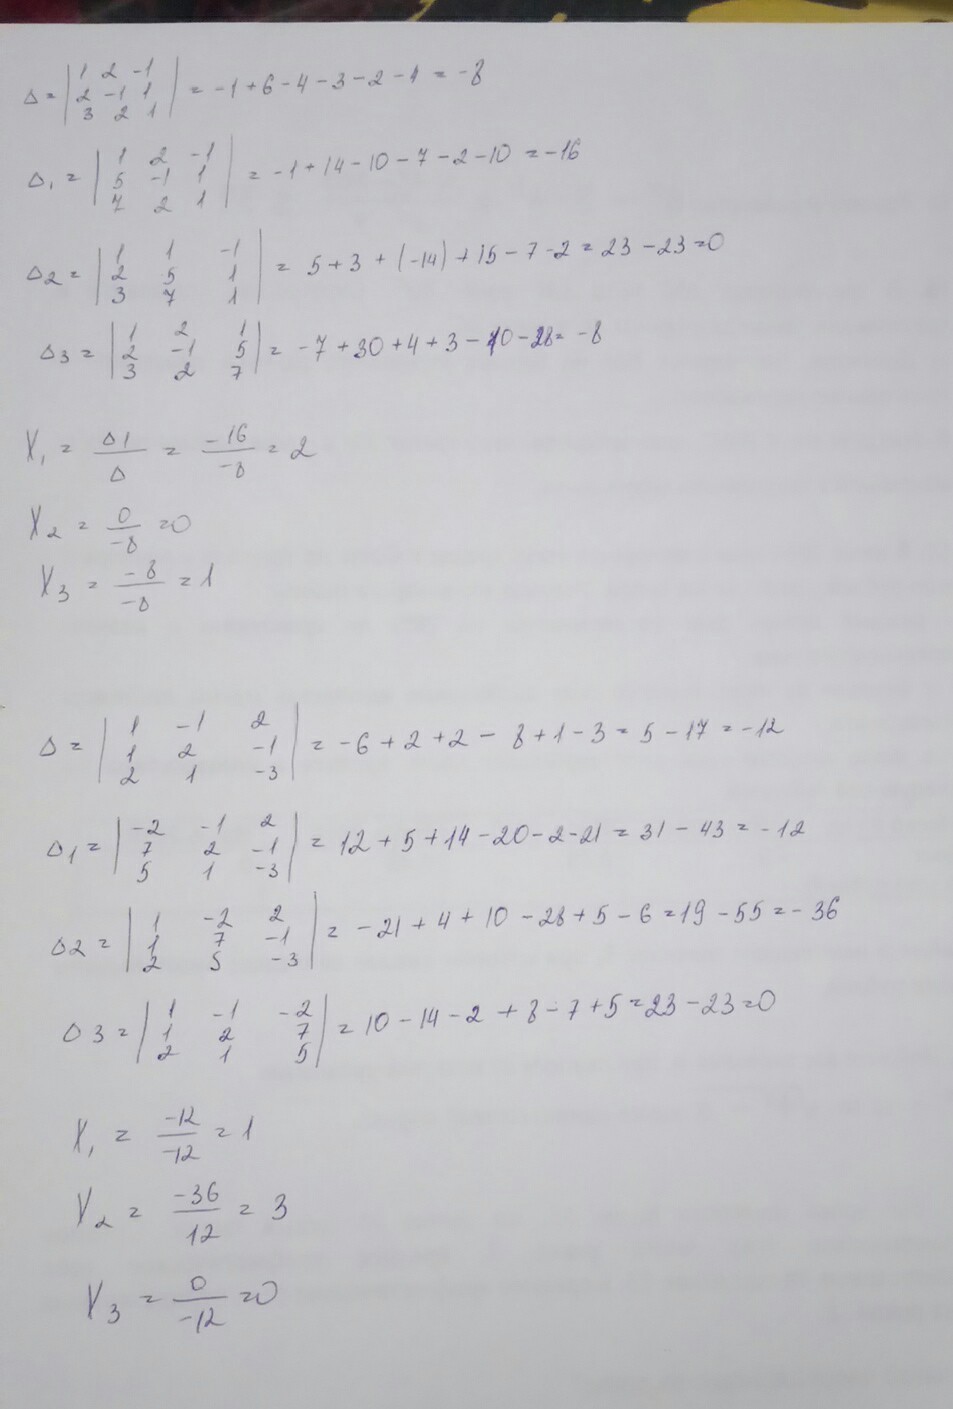 Δ = | 1 2 -1 | 2 -1 1 | 3 2 1 | = -1 + 6 - 4 - 3 - 2 - 4 = -8
Δ₁ = | 1 2 -1 | 5 -1 1 | 7 2 1 | = -1 + 14 - 10 - 7 - 2 - 10 = -16
Δ2 = | 1 1 -1 | 2 5 1 | 3 7 1 | = 5 + 3 + (-14) + 15 - 7 - 2 = 23 - 23 = 0
Δ3 = | 1 2 1 | 2 -1 5 | 3 2 7 | = -7 + 30 + 4 + 3 - 10 - 28 = -8
X₁ = Δ1/Δ = -16/-8 = 2
X₂ = 0/-8 = 0
X₃ = -8/-8 = 1
Δ = | 1 -1 2 | 1 2 -1 | 2 1 -3 | = -6 + 2 + 2 - 8 + 1 - 3 = 5 - 17 = -12
Δ1 = | -2 -1 2 | 7 2 -1 | 5 1 -3 | = 12 + 5 + 14 - 20 - 2 - 21 = 31 - 43 = -12
Δ2 = | 1 -2 2 | 1 7 -1 | 2 5 -3 | = -21 + 4 + 10 - 28 + 5 - 6 = 19 - 55 = -36
Δ3 = | 1 -1 -2 | 1 2 7 | 2 1 5 | = 10 - 14 - 2 + 8 - 7 + 5 = 23 - 23 = 0
X₁ = -12/-12 = 1
X₂ = -36/12 = 3
X₃ = 0/-12 = 0